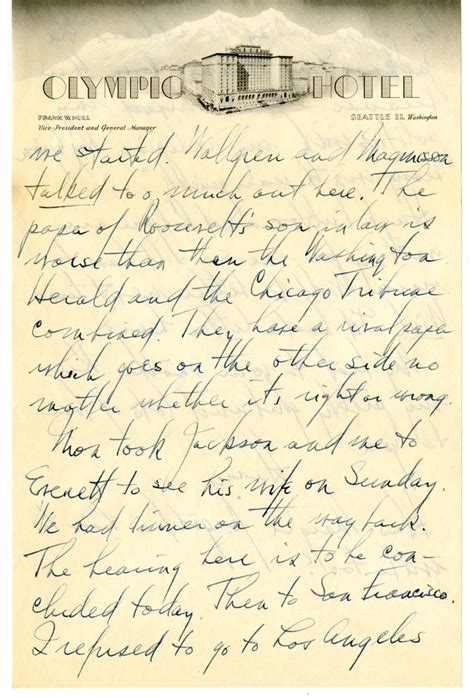 OLYMPIC HOTEL
FRANK W. HULL
Vice-President and General Manager
SEATTLE 11, Washington
we started. Wallgren and Magnuson
talked too much out here. The
papa of Roosevelt's son in law is
worse than then the Washington
Herald and the Chicago Tribune
combined. They have a rival paper
which goes on the other side no
matter whether its right or wrong.
Mon took Jackson and me to
Everett to see his wife on Sunday.
We had dinner on the way back.
The hearing here is to be con-
cluded today. Then to San Francisco.
I refused to go to Los Angeles